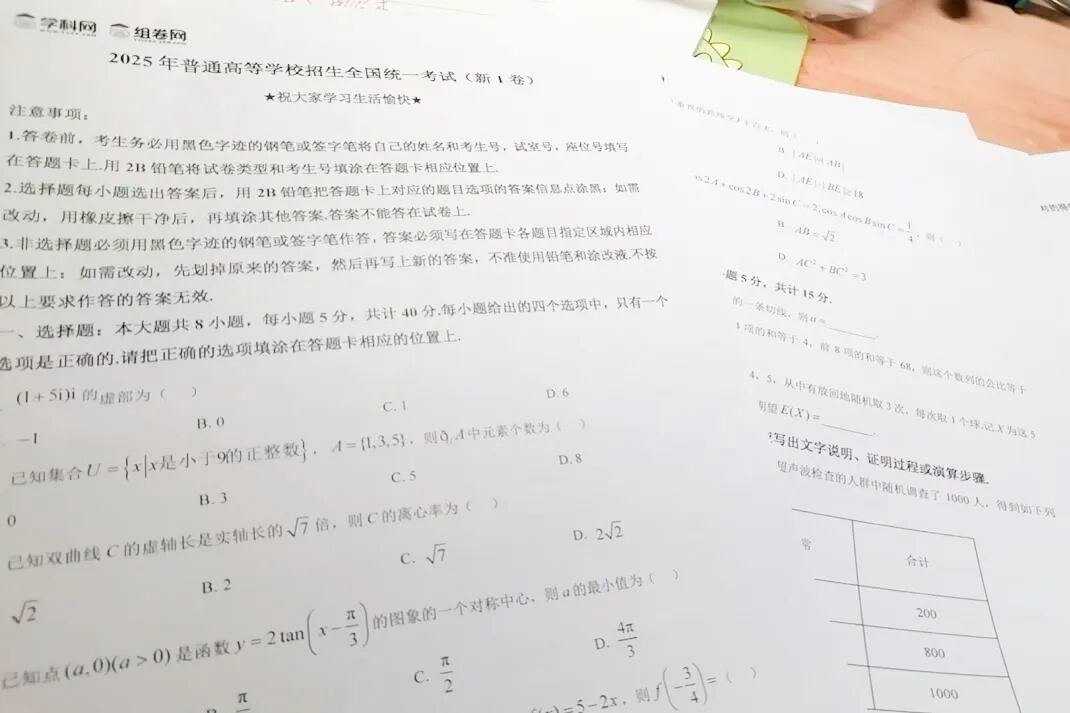 学科网 组卷网
2025 年普通高等学校招生全国统一考试（新 I 卷）
★祝大家学习生活愉快★
注意事项：
1.答卷前，考生务必用黑色字迹的钢笔或签字笔将自己的姓名和考生号，试室号，座位号填写
在答题卡上.用 2B 铅笔将试卷类型和考生号填涂在答题卡相应位置上.
2.选择题每小题选出答案后，用 2B 铅笔把答题卡上对应的题目选项的答案信息点涂黑；如需
改动，用橡皮擦干净后，再填涂其他答案.答案不能答在试卷上.
3.非选择题必须用黑色字迹的钢笔或签字笔作答，答案必须写在答题卡各题目指定区域内相应
位置上；如需改动，先划掉原来的答案，然后再写上新的答案，不准使用铅笔和涂改液.不按
以上要求作答的答案无效.
一、选择题：本大题共 8 小题，每小题 5 分，共计 40 分.每小题给出的四个选项中，只有一个
选项是正确的.请把正确的选项填涂在答题卡相应的位置上.
(1+5i)i 的虚部为（ ）
−1 B. 0 C. 1 D. 6
已知集合 U={x|x是小于9的正整数}，A={1,3,5}，则∁ᵤA 中元素个数为（ ）
0 B. 3 C. 5 D. 8
已知双曲线 C 的虚轴长是实轴长的 √7 倍，则 C 的离心率为（ ）
√2 B. 2 C. √7 D. 2√2
已知点 (a,0)(a>0) 是函数 y=2tan(x−π/3) 的图象的一个对称中心，则 a 的最小值为（ ）
π C. π/2 D. 4π/3
=5−2x，则 f(−3/4)=（ ）
B. |AE|=|AB|
D. |AE|·|BE|≥18
os2A+cos2B+2sinC=2,cosAcosBsinC=1/4，则（ ）
B. AB=√2
D. AC²+BC²=3
题 5 分，共计 15 分.
的一条切线，则 a=______.
项的和等于 4，前 8 项的和等于 68，则这个数列的公比等于
4，5，从中有放回地随机取 3 次，每次取 1 个球.记 X 为这 5
期望 E(X)=______.
写出文字说明、证明过程或演算步骤.
超声波检查的人群中随机调查了 1000 人，得到如下列
常 合计
200
800
1000